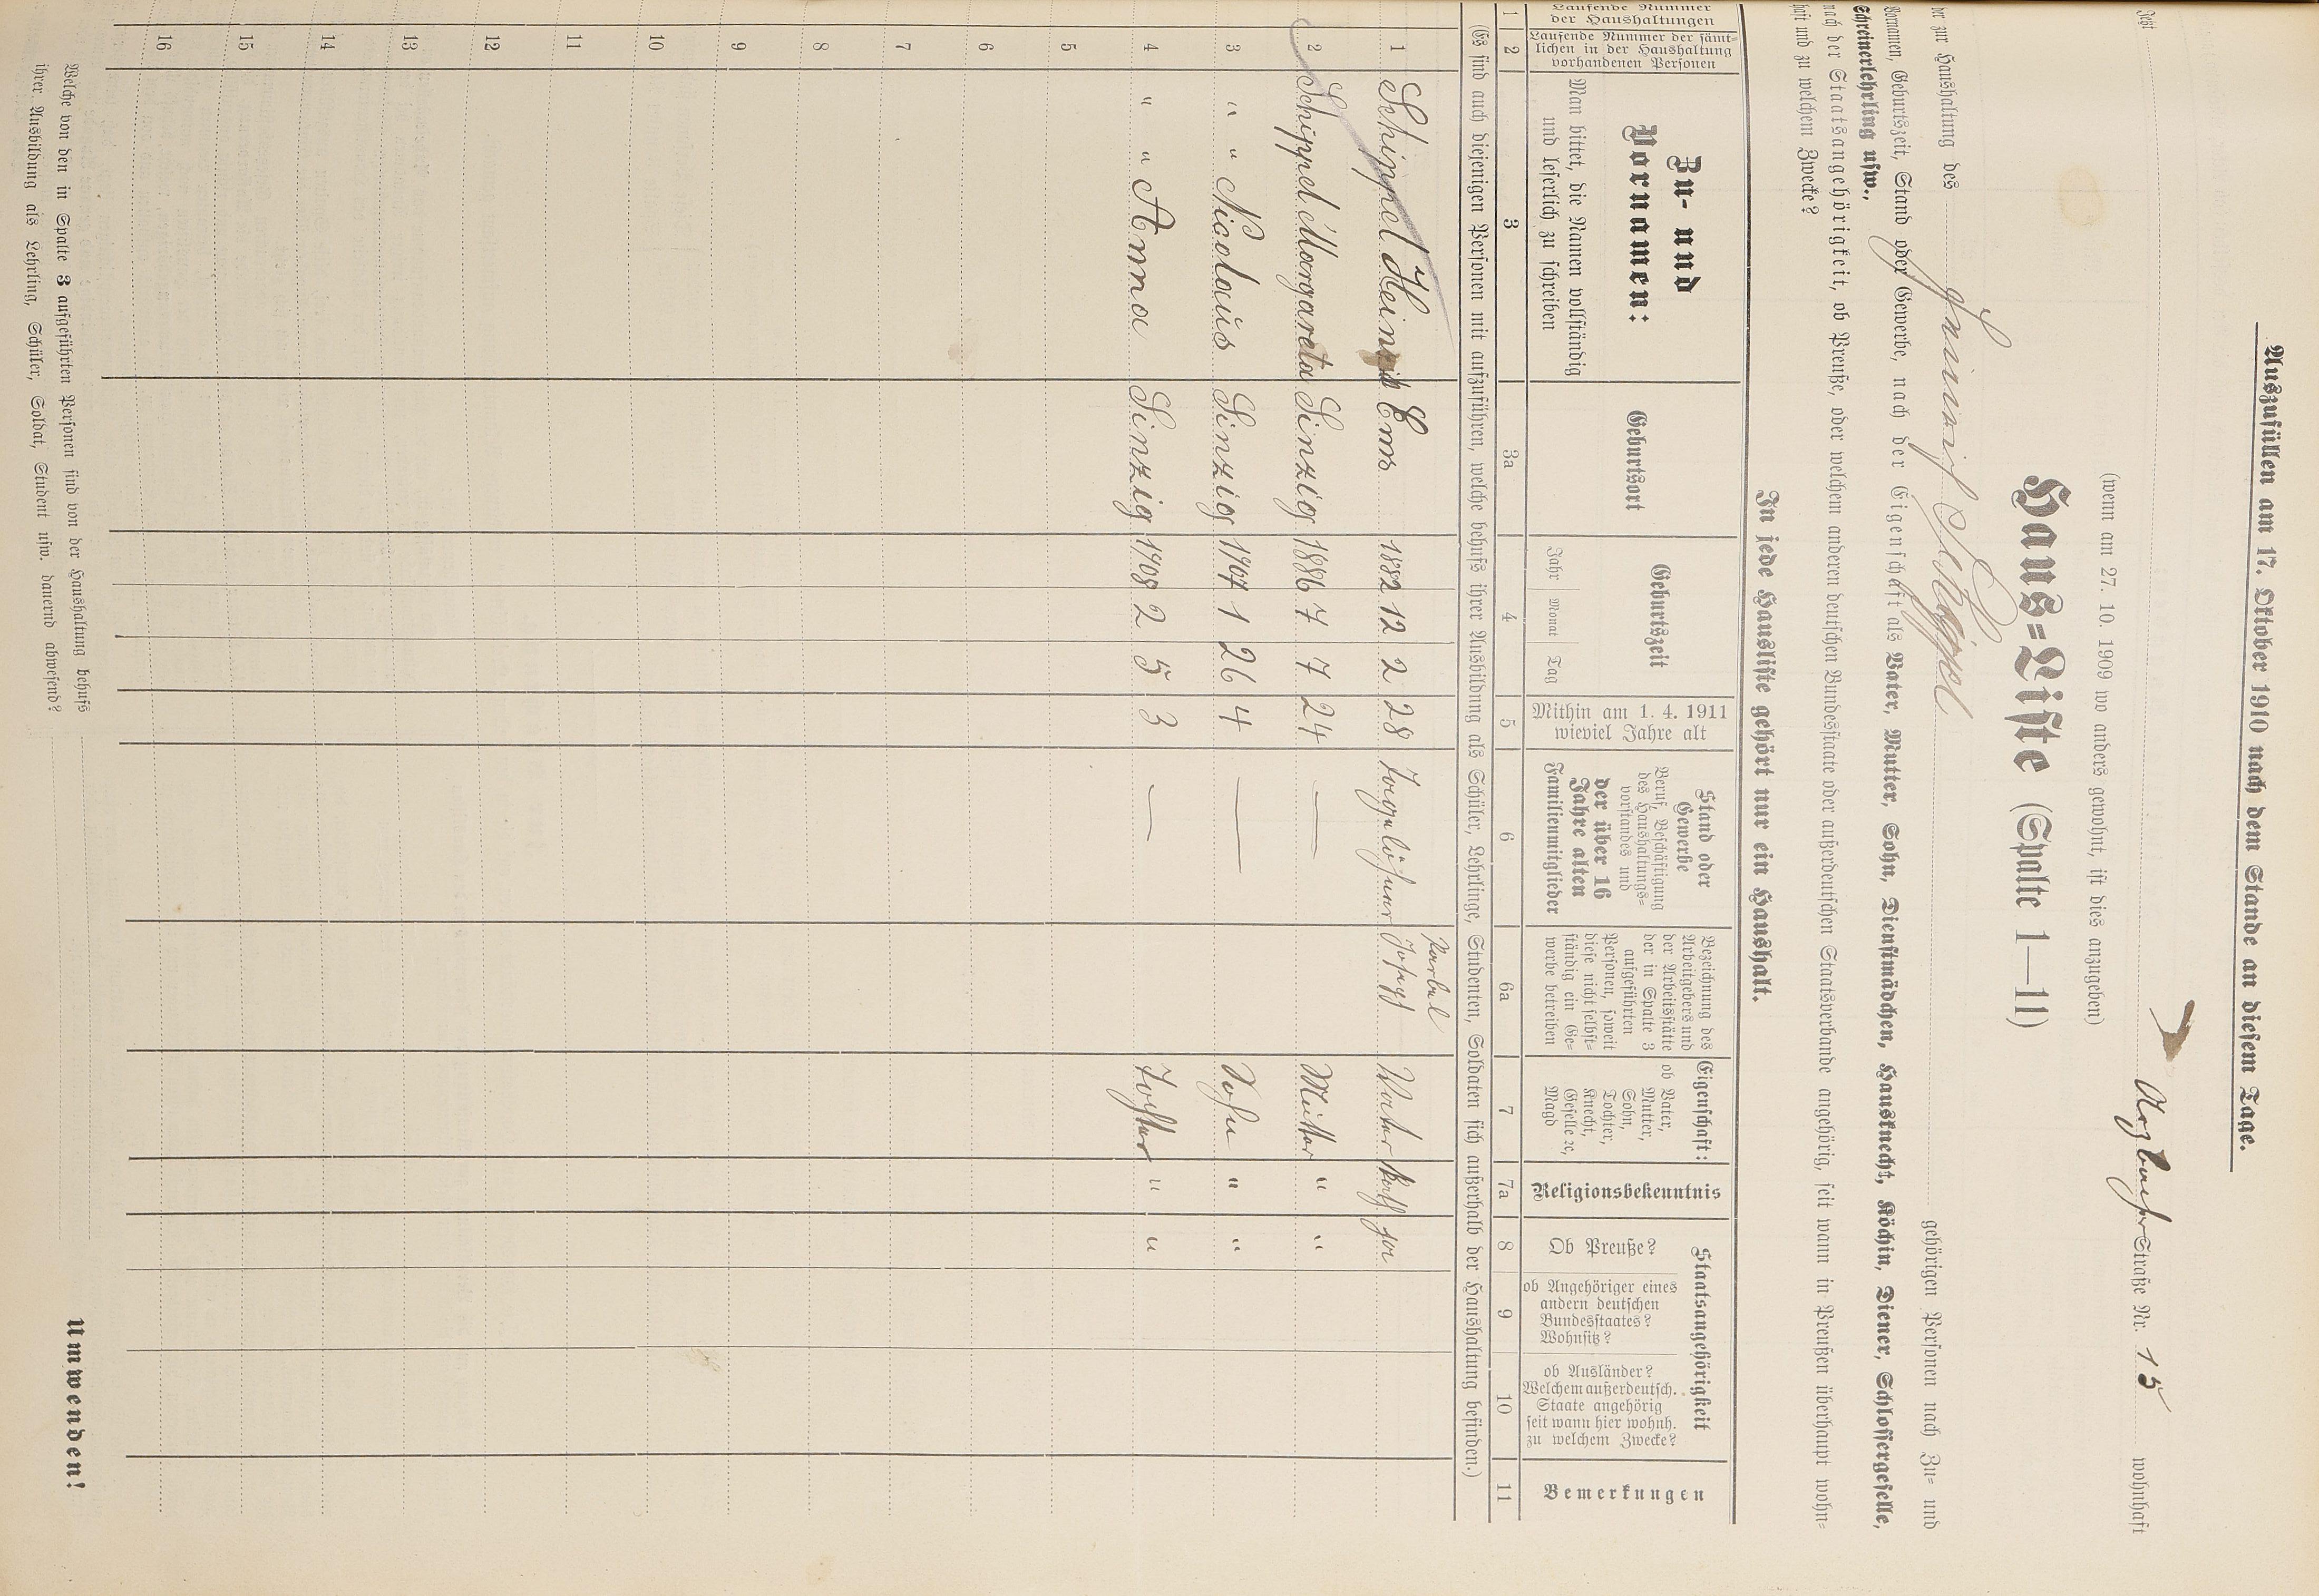 Auszufüllen am 17. Oktober 1910 nach dem Stande an diesem Tage.
Jetzt Straße Nr. 15 wohnhaft
(wenn am 27. 10. 1909 wo anders gewohnt, ist dies anzugeben)
Haus-Liste (Spalte 1—11)
der zur Haushaltung des Heinrich Schippel gehörigen Personen nach Zu- und
Vornamen, Geburtszeit, Stand oder Gewerbe, nach der Eigenschaft als Vater, Mutter, Sohn, Dienstmädchen, Hausknecht, Köchin, Diener, Schlossergeselle,
Schreinerlehrling usw.,
nach der Staatsangehörigkeit, ob Preuße, oder welchem anderen deutschen Bundesstaate oder außerdeutschen Staatsverbande angehörig, seit wann in Preußen überhaupt wohn-
haft und zu welchem Zwecke?
In jede Hausliste gehört nur ein Haushalt.
Laufende Nummer
der Haushaltungen
Laufende Nummer der sämt-
lichen in der Haushaltung
vorhandenen Personen
Zu- und
Vornamen:
Man bittet, die Namen vollständig
und leserlich zu schreiben
Geburtsort
Geburtszeit
Jahr Monat Tag
Mithin am 1. 4. 1911
wieviel Jahre alt
Stand oder
Gewerbe
Beruf, Beschäftigung
des Haushaltungs-
vorstandes und
der über 16
Jahre alten
Familienmitglieder
Bezeichnung des
Arbeitgebers und
der Arbeitsstätte
der in Spalte 3
aufgeführten
Personen, soweit
diese nicht selbst-
ständig ein Ge-
werbe betreiben
Eigenschaft:
ob Vater,
Mutter,
Sohn,
Tochter,
Knecht,
Geselle ꝛc,
Magd
Religionsbekenntnis
Staatsangehörigkeit
Ob Preuße?
ob Angehöriger eines
andern deutschen
Bundesstaates?
Wohnsitz?
ob Ausländer?
Welchem außerdeutsch.
Staate angehörig
seit wann hier wohnh.
zu welchem Zwecke?
Bemerkungen
1 2 3 3a 4 5 6 6a 7 7a 8 9 10 11
(Es sind auch diejenigen Personen mit aufzuführen, welche behufs ihrer Ausbildung als Schüler, Lehrlinge, Studenten, Soldaten sich außerhalb der Haushaltung befinden.)
1 Schippel Heinrich Ems 1882 12 2 28 Tagelöhner Josef Vater Kath ja
2 Schippel Margareta Sinzig 1886 7 7 24 — Mutter " "
3 " " Nicolaus Sinzig 1907 1 26 4 — Sohn " "
4 " " Anna Sinzig 1908 2 5 3 — Tochter " "
5
6
7
8
9
10
11
12
13
14
15
16
Welche von den in Spalte 3 aufgeführten Personen sind von der Haushaltung behufs
ihrer Ausbildung als Lehrling, Schüler, Soldat, Student usw. dauernd abwesend?
Umwenden!